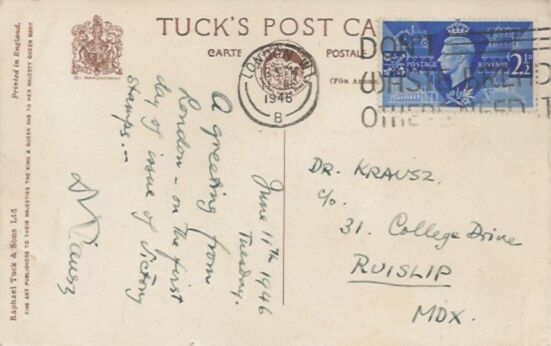 TUCK'S POST CA
CARTE POSTALE
(FOR ADDRE
BY APPOINTMENT
Printed in England.
Raphael Tuck & Sons Ltd
FINE ART PUBLISHERS TO THEIR MAJESTIES THE KING & QUEEN AND TO HER MAJESTY QUEEN MARY
LONDON
1946
B
DON'T
WASTE BREAD
OTHERS NEED IT
POSTAGE REVENUE
2½D
June 11th 1946
Tuesday.
A greeting from
London - on the first
day of issue of Victory
stamps. -
D Krausz
DR. KRAUSZ,
c/o.
31. College Drive
RUISLIP
MDX.